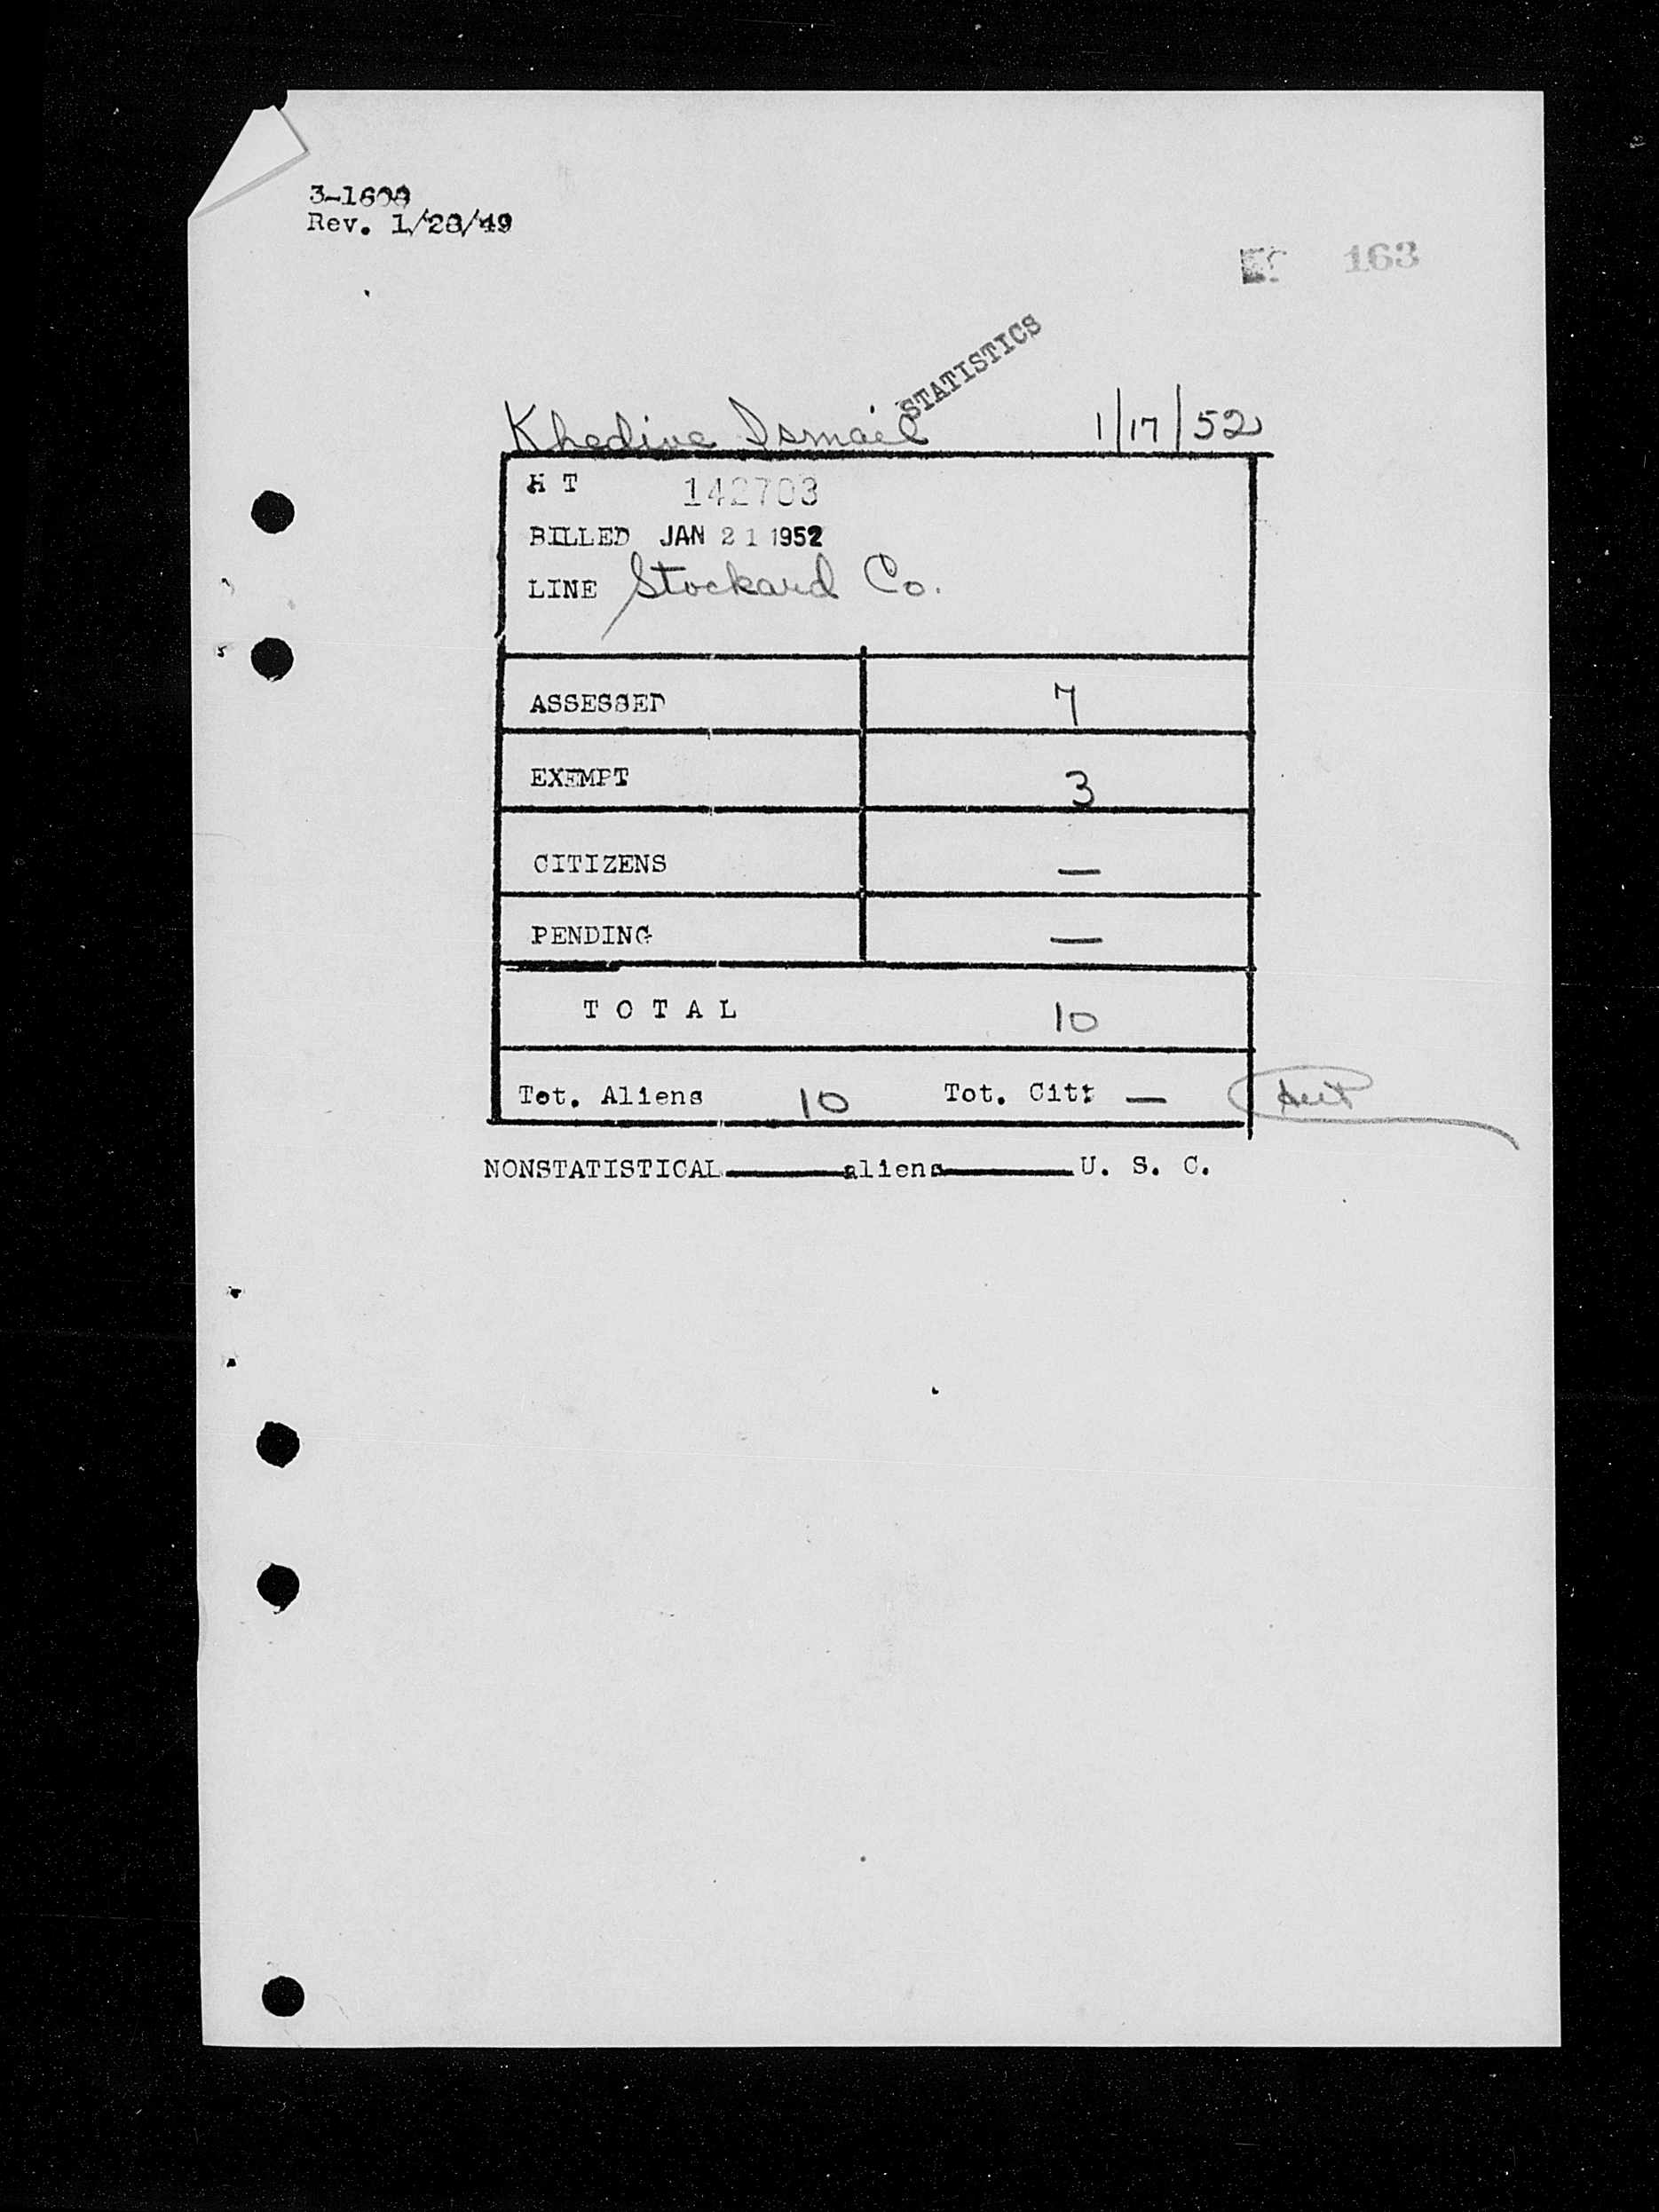 3-1608
Rev. 1/28/49
163
STATISTICS
Khedive Ismail 1/17/52
H T 142703
BILLED JAN 21 1952
LINE Stockard Co.
ASSESSED 7
EXEMPT 3
CITIZENS —
PENDING —
TOTAL 10
Tot. Aliens 10 Tot. Cit: —
NONSTATISTICAL aliens U. S. C.